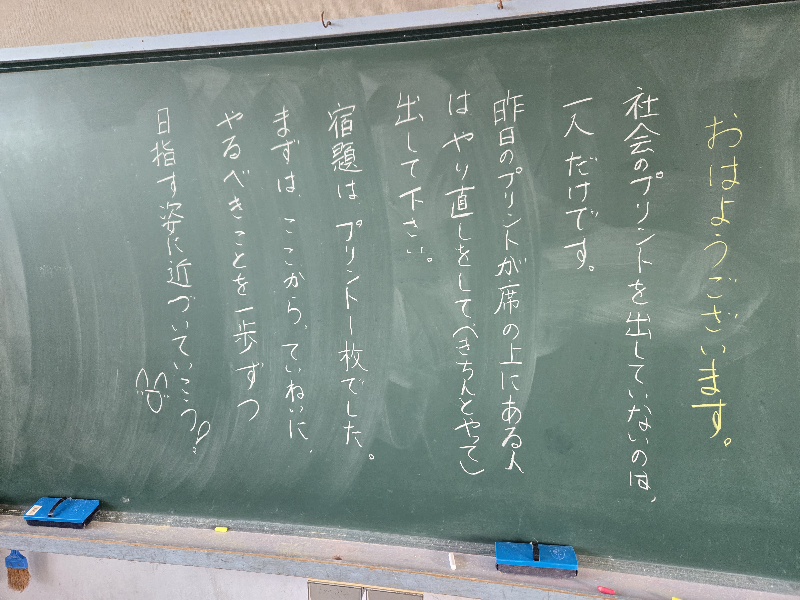 おはようございます。
社会のプリントを出していないのは、
一人だけです。
昨日のプリントが席の上にある人
はやり直しをしてべきちんとやって
出して下さい。
宿題はプリント1枚でした。
まずは、ここから。ていねいに、
やるべきことを一歩ずつ
目指す姿に近づいていこう!